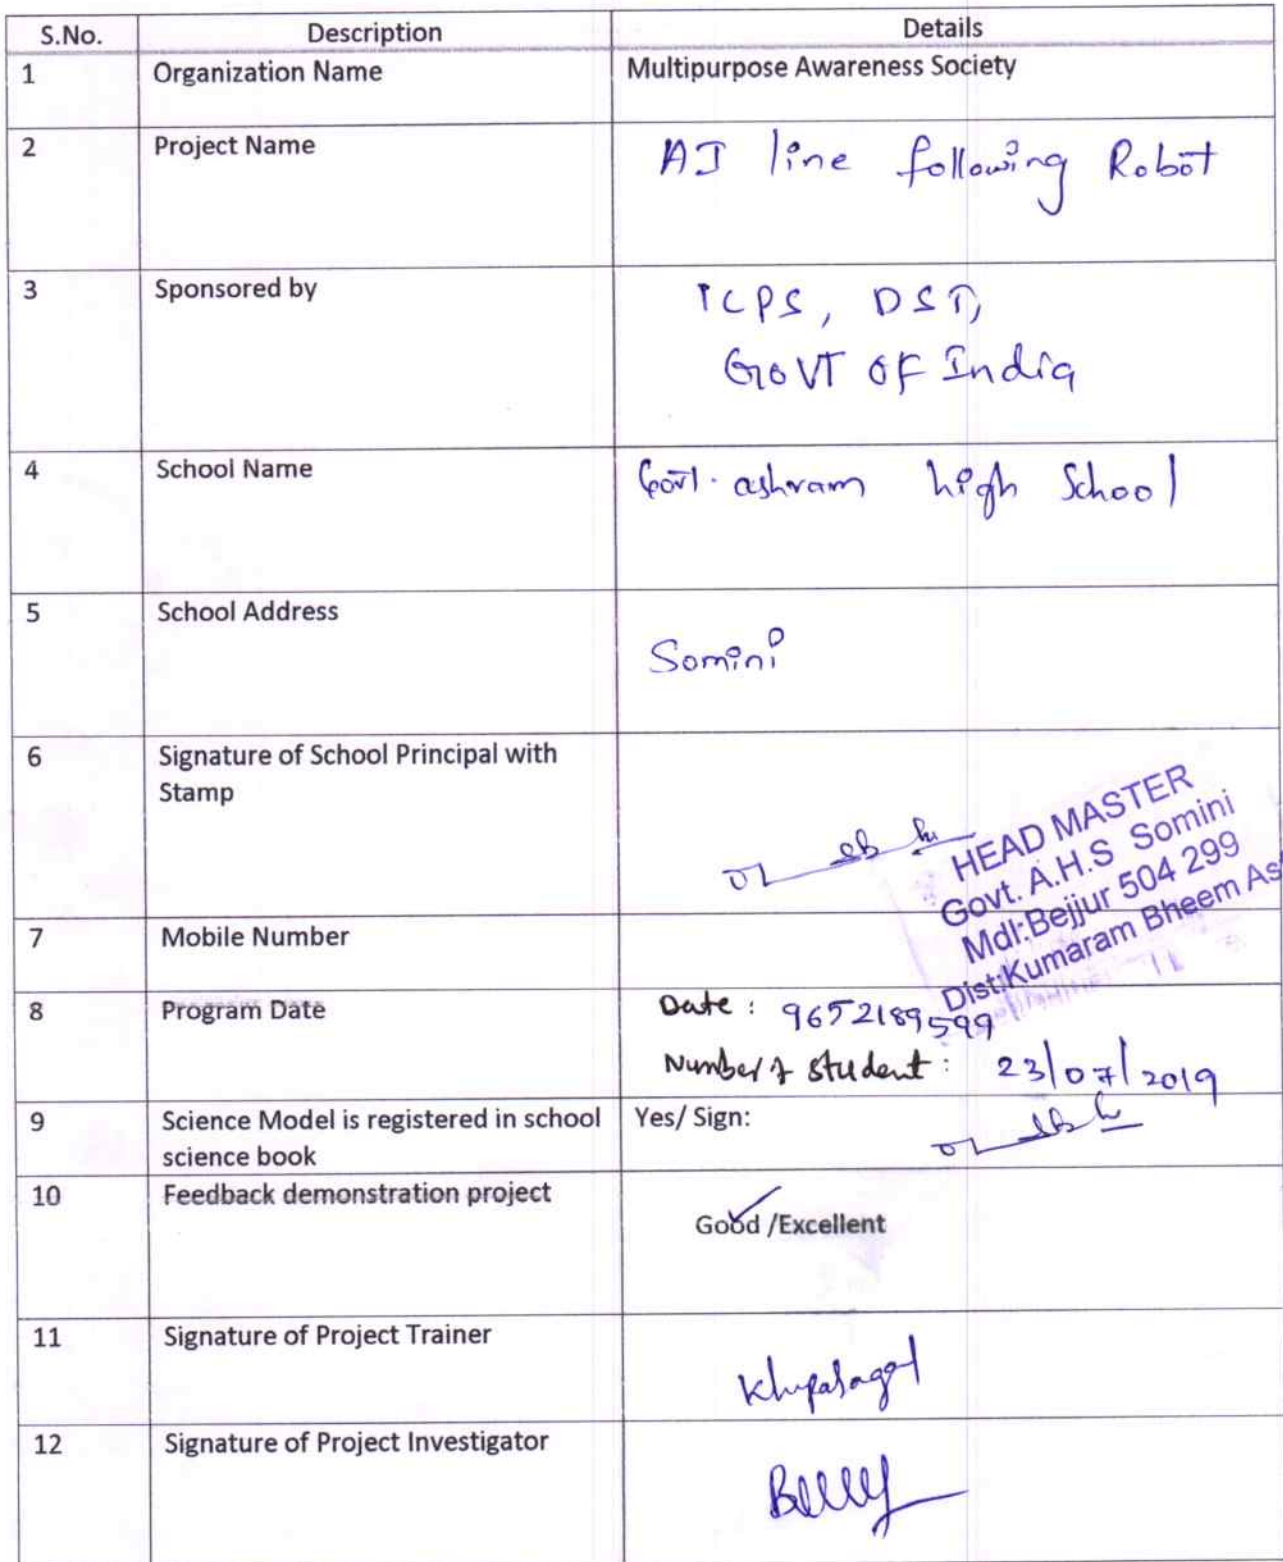 S.No. Description Details
1 Organization Name Multipurpose Awareness Society
2 Project Name AI line following Robot
3 Sponsored by ICPS, DST,
GOVT OF India
4 School Name Govt. ashram high School
5 School Address
Somini
6 Signature of School Principal with
Stamp
HEAD MASTER
Govt. A.H.S Somini
Mdl:Bejjur 504 299
Dist:Kumaram Bheem As
7 Mobile Number
8 Program Date Date : 9652189599
Number of student : 23/07/2019
9 Science Model is registered in school Yes/ Sign:
science book
10 Feedback demonstration project
Good /Excellent
11 Signature of Project Trainer
12 Signature of Project Investigator